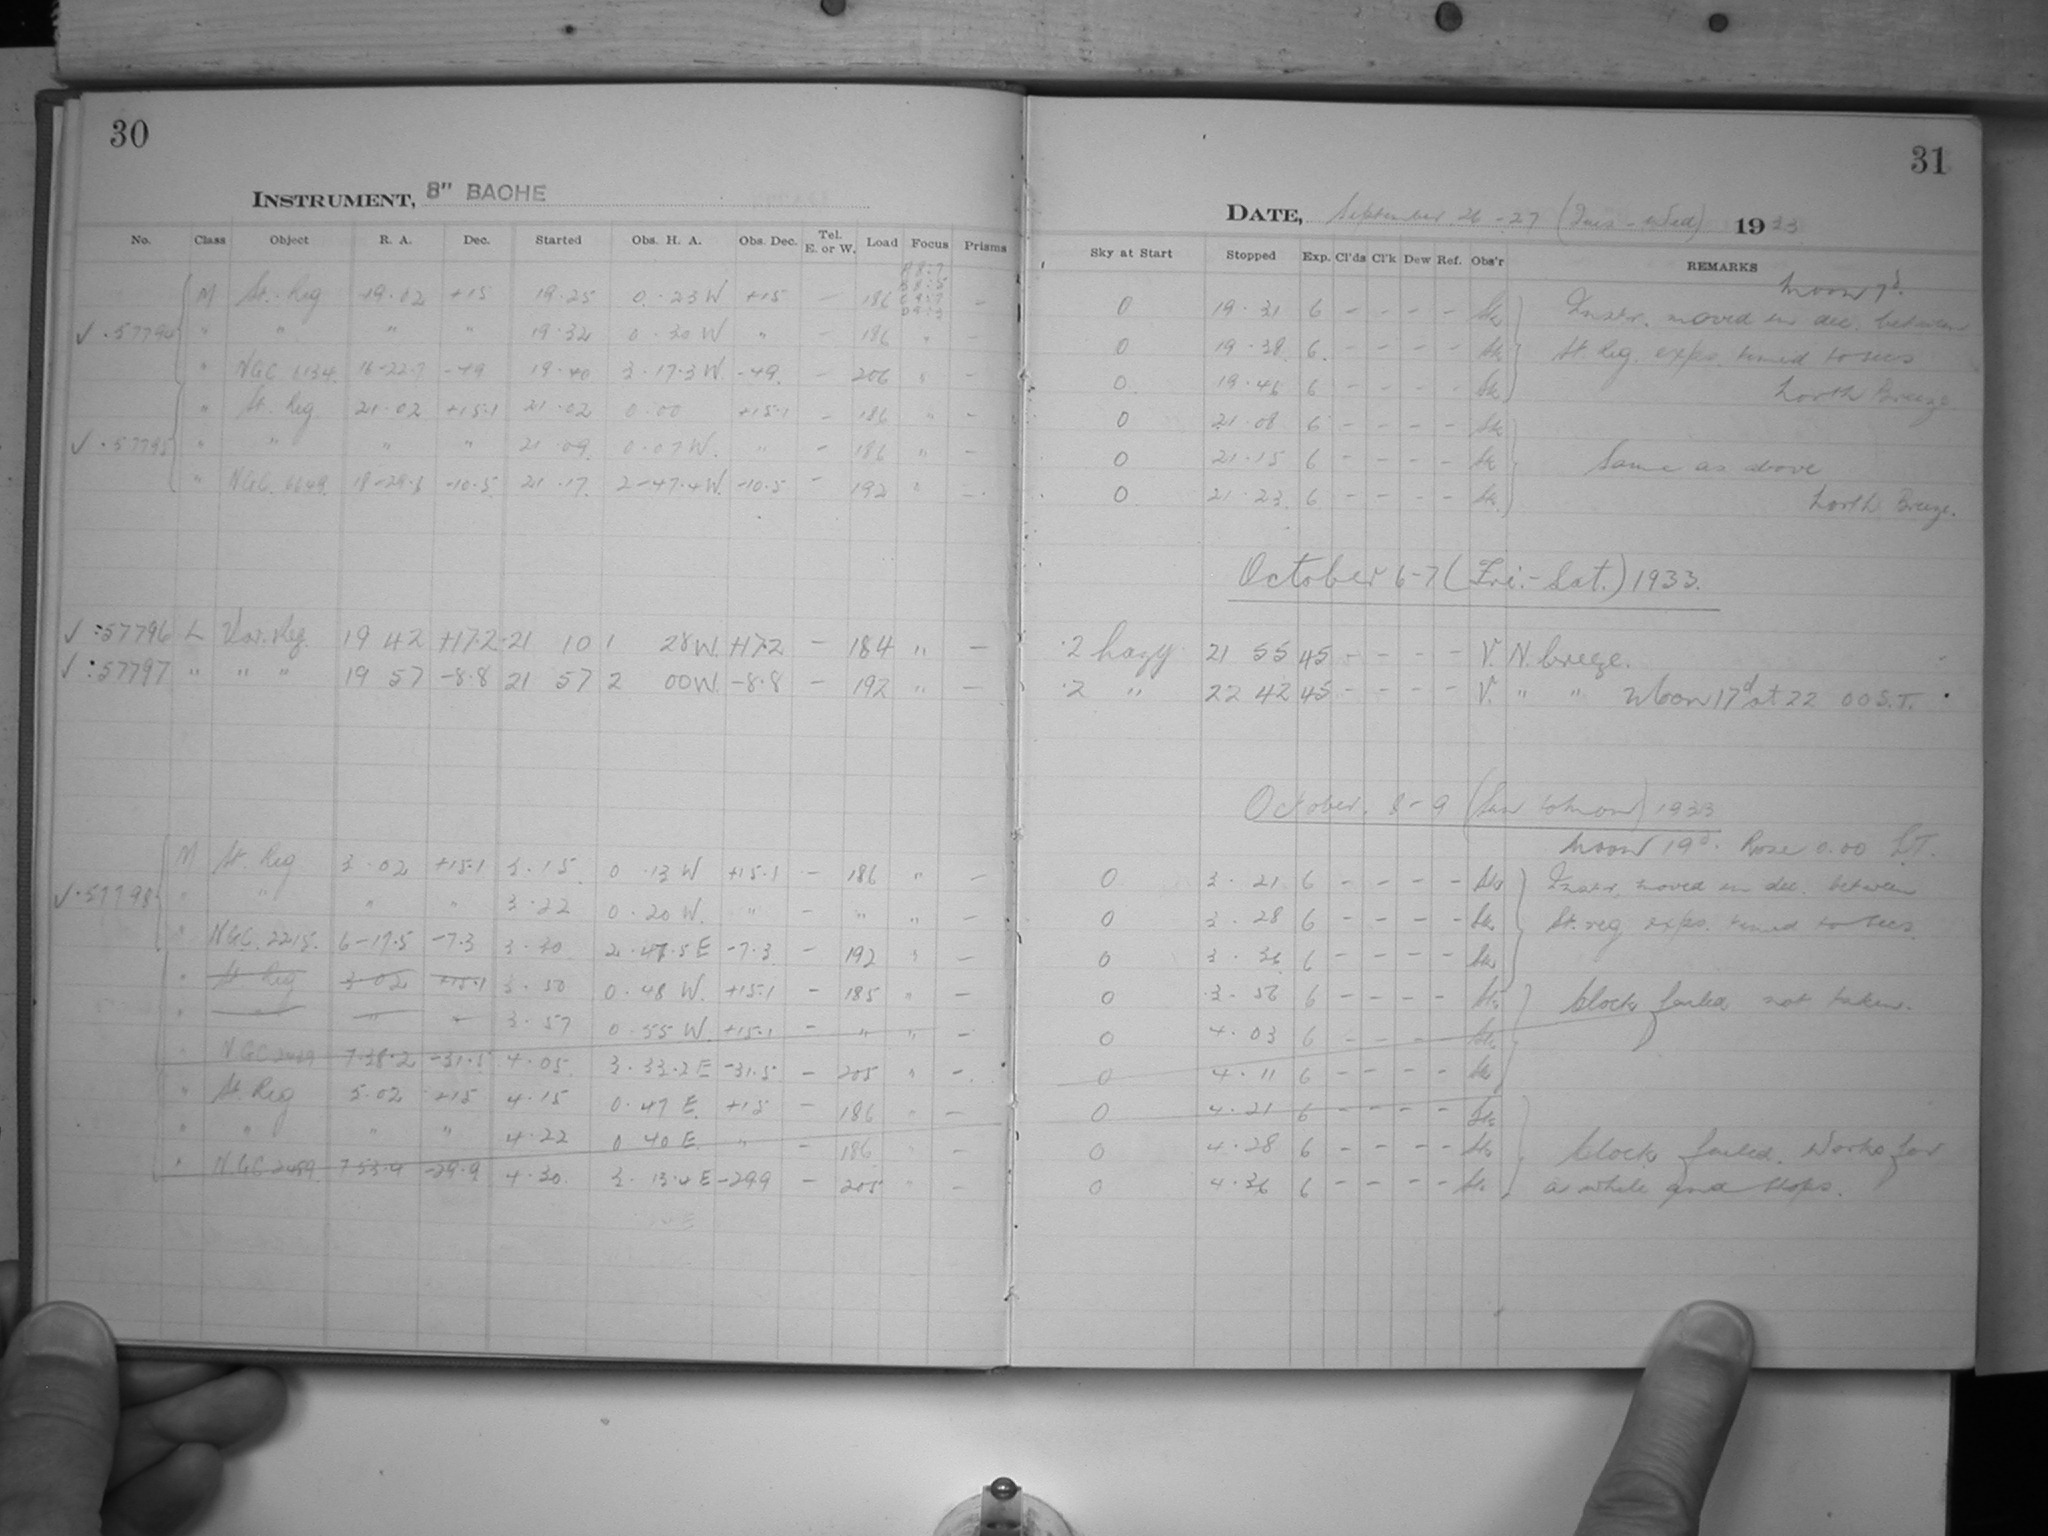 30
INSTRUMENT, 8" BACHE
No. Class Object R. A. Dec. Started Obs. H. A. Obs. Dec. Tel. E. or W. Load Focus Prisms
M St. Reg 19·02 +15 19·25 0·23 W +15 – 186 –
✓·57794 " " " " 19·32 0·30 W " – 186 " –
" NGC 6134 16-22·7 -49 19·40 3·17·3 W. -49. – 206 " –
" St. Reg. 21·02 +15·1 21·02 0·00 +15·1 – 186 " –
✓·57795 " " " " 21·09 0·07 W. " – 186 " –
" NGC. 6649. 18-29·3 -10·5 21·17. 2-47·4 W. -10·5 – 192 " –
✓:57796 L Var. Reg. 19 42 +17·2 21 10 1 28 W. +17·2 – 184 " –
✓:57797 " " " 19 57 -8·8 21 57 2 00 W. -8·8 – 192 " –
M St. Reg 3·02 +15·1 3·15 0·13 W +15·1 – 186 " –
✓·57798 " " " " 3·22 0·20 W. " – " " –
" NGC. 2215. 6-17·5 -7·3 3·30 2·47·5 E -7·3 – 192 " –
" St Reg 3·02 +15·1 3·50 0·48 W. +15·1 – 185 " –
" " " " 3·57 0·55 W. +15·1 – " " –
" NGC 7·38·2 -31·5 4·05 3·33·2 E -31·5 – 205 " –
" St. Reg 5·02 +15 4·15 0·47 E. +15 – 186 " –
" " " " 4·22 0 40 E " – 186 " –
" N.GC 7·53·9 -29·9 4·30. 3·13·4 E -29·9 – 205 " –
31
DATE, September 26-27 (Tues-Wed) 1933
Sky at Start Stopped Exp. Cl'ds Cl'k Dew Ref. Obs'r REMARKS
Moon 7d.
0 19·31 6 – – – – Instr. moved in dec. between
0 19·38 6 – – – – St. Reg. exps. timed to secs
0 19·46 6 – – – – North Breeze.
0 21·08 6 – – – –
0 21·15 6 – – – – Same as above
0 21·23 6 – – – – North Breeze.
October 6-7 (Fri.-Sat.) 1933.
·2 hazy 21 55 45 – – – – V. N. breeze.
·2 " 22 42 45 – – – – V. " " Moon 17d at 22 00 S.T.
October. 8-9 (Sun to Mon) 1933
Moon 19d. Rose 0.00 S.T.
0 3·21 6 – – – – Instr. moved in dec. between
0 3·28 6 – – – – St. reg exps. timed to secs.
0 3·36 6 – – – –
0 3·56 6 – – – – Clock failed, not taken.
0 4·03 6 – – – –
0 4·11 6 – – – –
0 4·21 6 – – – –
0 4·28 6 – – – – Clock failed. Works for
0 4·36 6 – – – – a while and stops.